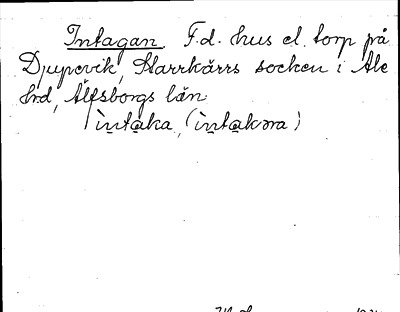 Intagan. F.d. hus el. torp på
Djupevik, Starrkärrs socken i Ale
hrd, Älfsborgs län.
ìntaka, (ìntakəra)